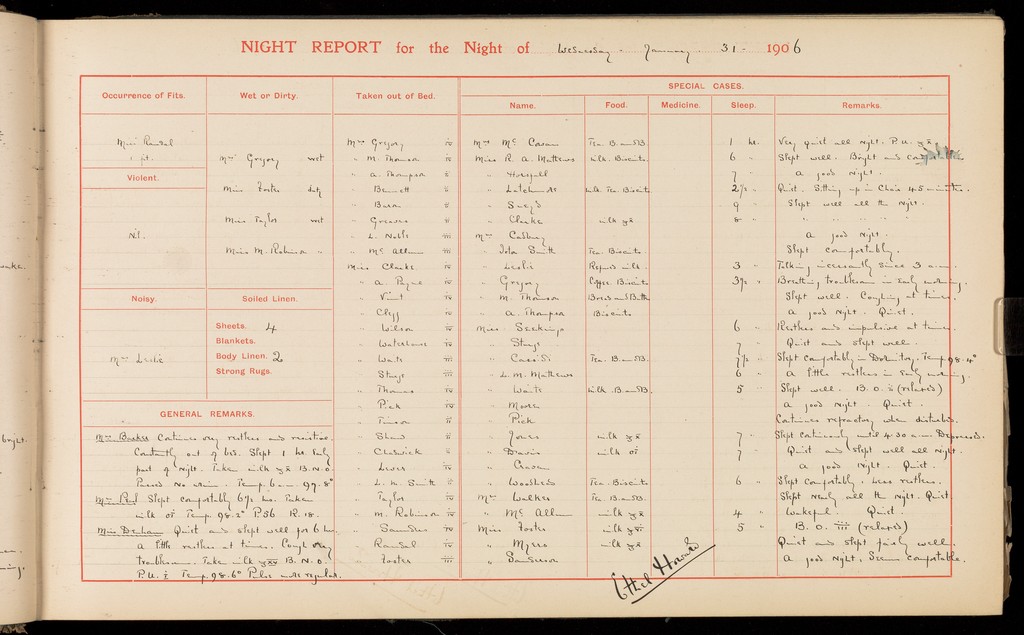 NIGHT REPORT for the Night of Wednesday - January - 31 - 1906
SPECIAL CASES.
Occurrence of Fits. Wet or Dirty. Taken out of Bed. Name. Food. Medicine. Sleep. Remarks.
Miss Randal
1 fit.
Violent.
Nil.
Noisy.
Mrs Leslie
Mrs Gregory wet
Miss Foster dirty
Miss Taylor wet
Miss M. Robinson "
Soiled Linen.
Sheets. 4
Blankets.
Body Linen. 2
Strong Rugs.
Mrs Gregory iv
" M. Thomson iv
" A. Thompson ii
" Bennett ii
" Baron iv
" Greaves ii
" L. Noble iii
" Mc Allum iii
Miss Clarke iv
" A. Payne iv
" Vint iv
" Clegg iv
" Wilson iv
" Waterhouse iv
" Waite iii
" Stays iii
" Thomas iv
" Pick iv
" Timson ii
" Shaw ii
" Chadwick ii
" Lewis iv
" L. M. Smith ii
" Taylor iv
" M. Robinson iv
" Sanders iv
" Randal iv
" Foster iii
Mrs Mc Cowan Tea. B. and B. 1 hr. Very quiet all night. P.U.
Miss R. A. Mathews milk. Biscuits. 6 " Slept well. Bright and
" Horsfall 7 " A good night.
" Latchmore milk. Tea. Biscuits 2½ " Quiet. Sitting up in Chair 45 minutes.
" 9 " Slept well all the night.
" Clarke milk 8 " " " " "
Mrs Cadbury A good night.
" Iola Smith Tea. Biscuits. Slept comfortably.
" Leslie Refused milk. 3 " Talking incessantly since 3 a.m.
" Gregory Coffee. Biscuits 3½ " Breathing troublesome in early morning.
" M. Thomson Bread and Butter Slept well. Coughing at times.
" A. Thompson Biscuits A good night. Quiet.
Miss Seekings 6 " Restless and impulsive at times.
" Stays 7 " Quiet and slept well.
" Tea. B. and B. 7½ " Slept comfortably in Dormitory. Temp. 98.4°
" L. M. Mathews 6 " A little restless in early morning.
" Waite milk. B. and B. 5 " Slept well. B.O. ii (relaxed)
" Moore A good night. Quiet.
" Pick Continues refractory when disturbed.
" Jones milk 7 " Slept continuously until 4.30 a.m. Depressed.
" Davis milk 7 " Quiet and slept well all night.
" Craven A good night. Quiet.
" Woodhead Tea. Biscuits 6 " Slept comfortably. Less restless.
Mrs Walker Tea. B. and B. Slept nearly all the night. Quiet
" Mc Allum milk 4 " Wakeful. Quiet.
Miss Foster milk 5 " B.O. iii (relaxed)
" Myers milk Quiet and slept fairly well.
" Sanderson A good night. Seems comfortable.
GENERAL REMARKS.
Mrs Barker Continues very restless and resistive.
Constantly out of bed. Slept 1 hr. early
part of night. Taken milk B.N.O.
Passed no urine. Temp. 6 a.m. 97.8°
Mrs Peel Slept comfortably 6½ hrs. Taken
milk Temp. 98.2° P.56 R.18.
Miss Denham Quiet and slept well for 6 hrs.
A little restless at times. Cough very
troublesome. Taken milk B.N.O.
P.U. i Temp. 98.6° Pulse more regular.
Ethel Howard